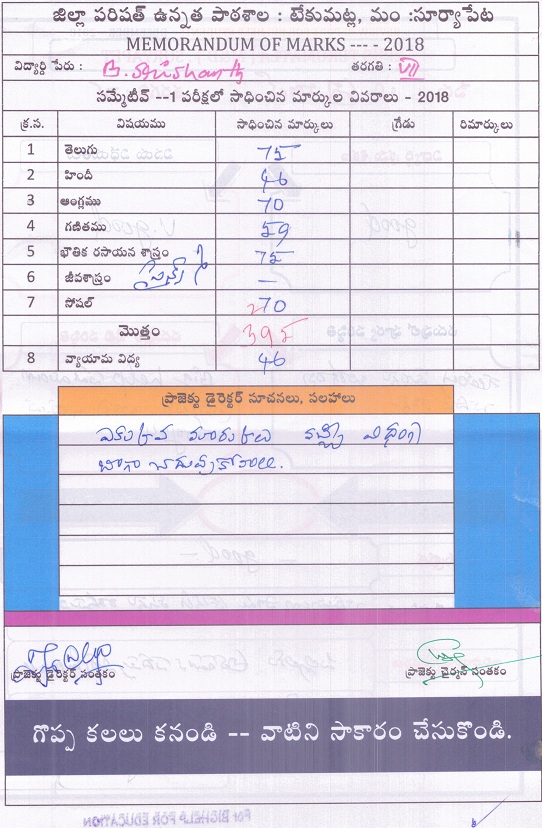 జిల్లా పరిషత్ ఉన్నత పాఠశాల : టేకుమట్ల, మం :సూర్యాపేట
MEMORANDUM OF MARKS --- - 2018
విద్యార్ధి పేరు : B. Srishanth తరగతి : VII
సమ్మేటీవ్ --1 పరీక్షలో సాధించిన మార్కుల వివరాలు - 2018
క్ర.స. విషయము సాధించిన మార్కులు గ్రేడు రిమార్కులు
1 తెలుగు 75
2 హిందీ 46
3 ఆంగ్లము 70
4 గణితము 59
5 భౌతిక రసాయన శాస్త్రం 75
6 జీవశాస్త్రం —
7 సోషల్ 70
మొత్తం 395
8 వ్యాయామ విద్య 46
ప్రాజెక్టు డైరెక్టర్ సూచనలు, సలహాలు
ఎక్కువ మార్కులు వచ్చే విధంగా
బాగా చదువుకోవాలి.
ప్రాజెక్టు డైరెక్టర్ సంతకం ప్రాజెక్టు చైర్మన్ సంతకం
గొప్ప కలలు కనండి -- వాటిని సాకారం చేసుకొండి.
For BIGHELP FOR EDUCATION